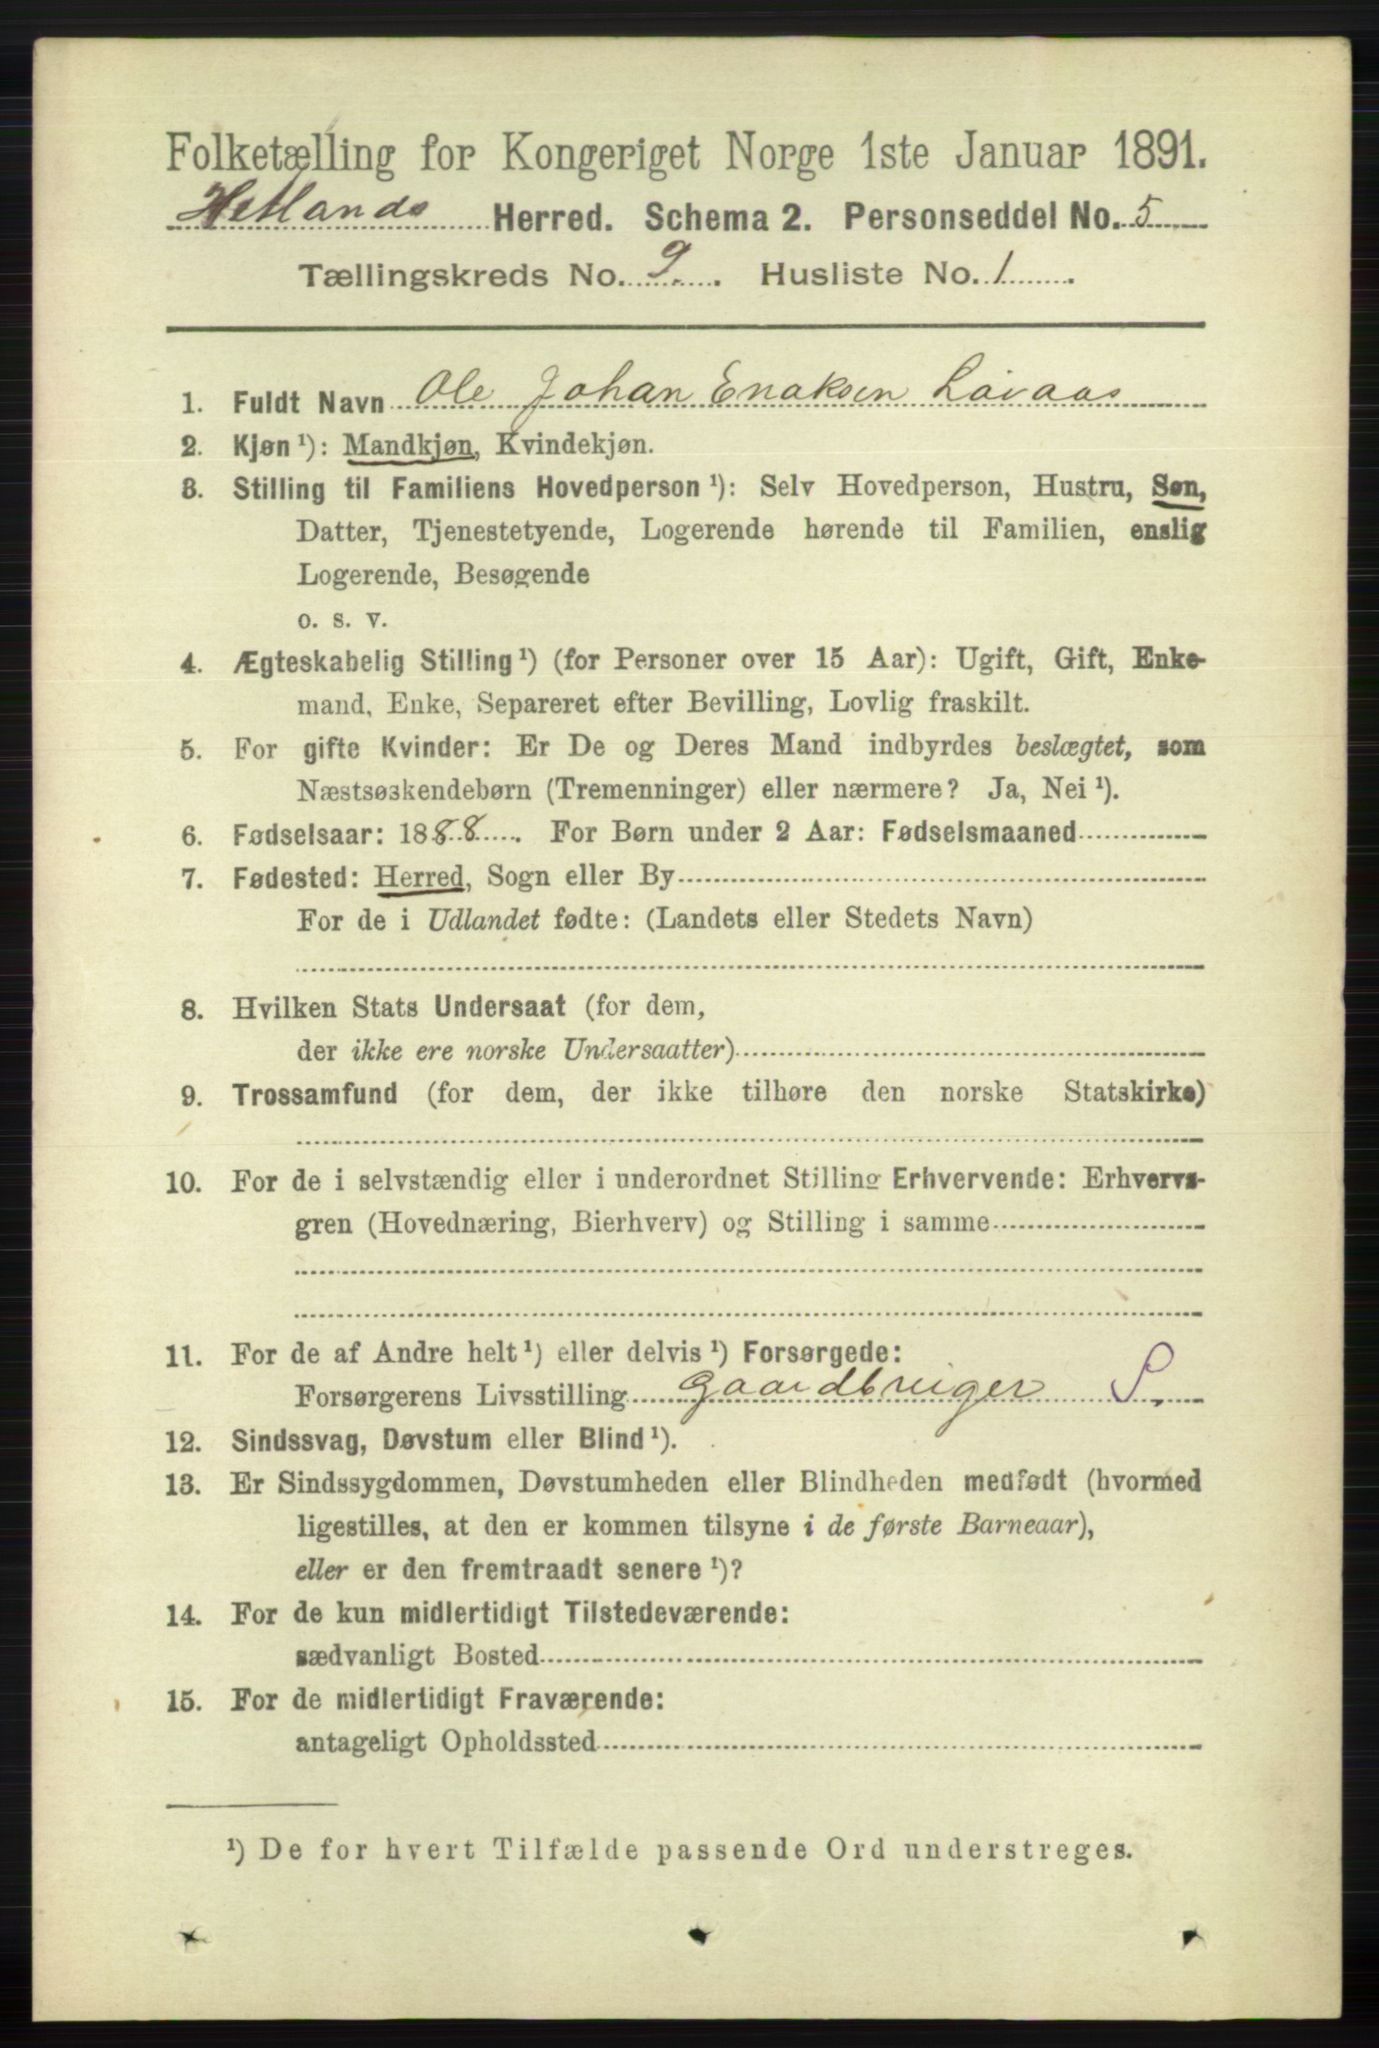 Folketælling for Kongeriget Norge 1ste Januar 1891.
Hetlands Herred. Schema 2. Personseddel No. 5
Tællingskreds No. 9. Husliste No. 1
1. Fuldt Navn Ole Johan Enoksen Lovaas
2. Kjøn ¹): Mandkjøn, Kvindekjøn.
3. Stilling til Familiens Hovedperson ¹): Selv Hovedperson, Hustru, Søn,
Datter, Tjenestetyende, Logerende hørende til Familien, enslig
Logerende, Besøgende
o. s. v.
4. Ægteskabelig Stilling ¹) (for Personer over 15 Aar): Ugift, Gift, Enke-
mand, Enke, Separeret efter Bevilling, Lovlig fraskilt.
5. For gifte Kvinder: Er De og Deres Mand indbyrdes beslægtet, som
Næstsøskendebørn (Tremenninger) eller nærmere? Ja, Nei ¹).
6. Fødselsaar: 1888. For Børn under 2 Aar: Fødselsmaaned
7. Fødested: Herred, Sogn eller By
For de i Udlandet fødte: (Landets eller Stedets Navn)
8. Hvilken Stats Undersaat (for dem,
der ikke ere norske Undersaatter)
9. Trossamfund (for dem, der ikke tilhøre den norske Statskirke)
10. For de i selvstændig eller i underordnet Stilling Erhvervende: Erhvervs-
gren (Hovednæring, Bierhverv) og Stilling i samme
11. For de af Andre helt ¹) eller delvis ¹) Forsørgede:
Forsørgerens Livsstilling Gaardbruger S.
12. Sindssvag, Døvstum eller Blind ¹).
13. Er Sindssygdommen, Døvstumheden eller Blindheden medfødt (hvormed
ligestilles, at den er kommen tilsyne i de første Barneaar),
eller er den fremtraadt senere ¹)?
14. For de kun midlertidigt Tilstedeværende:
sædvanligt Bosted
15. For de midlertidigt Fraværende:
antageligt Opholdssted
¹) De for hvert Tilfælde passende Ord understreges.